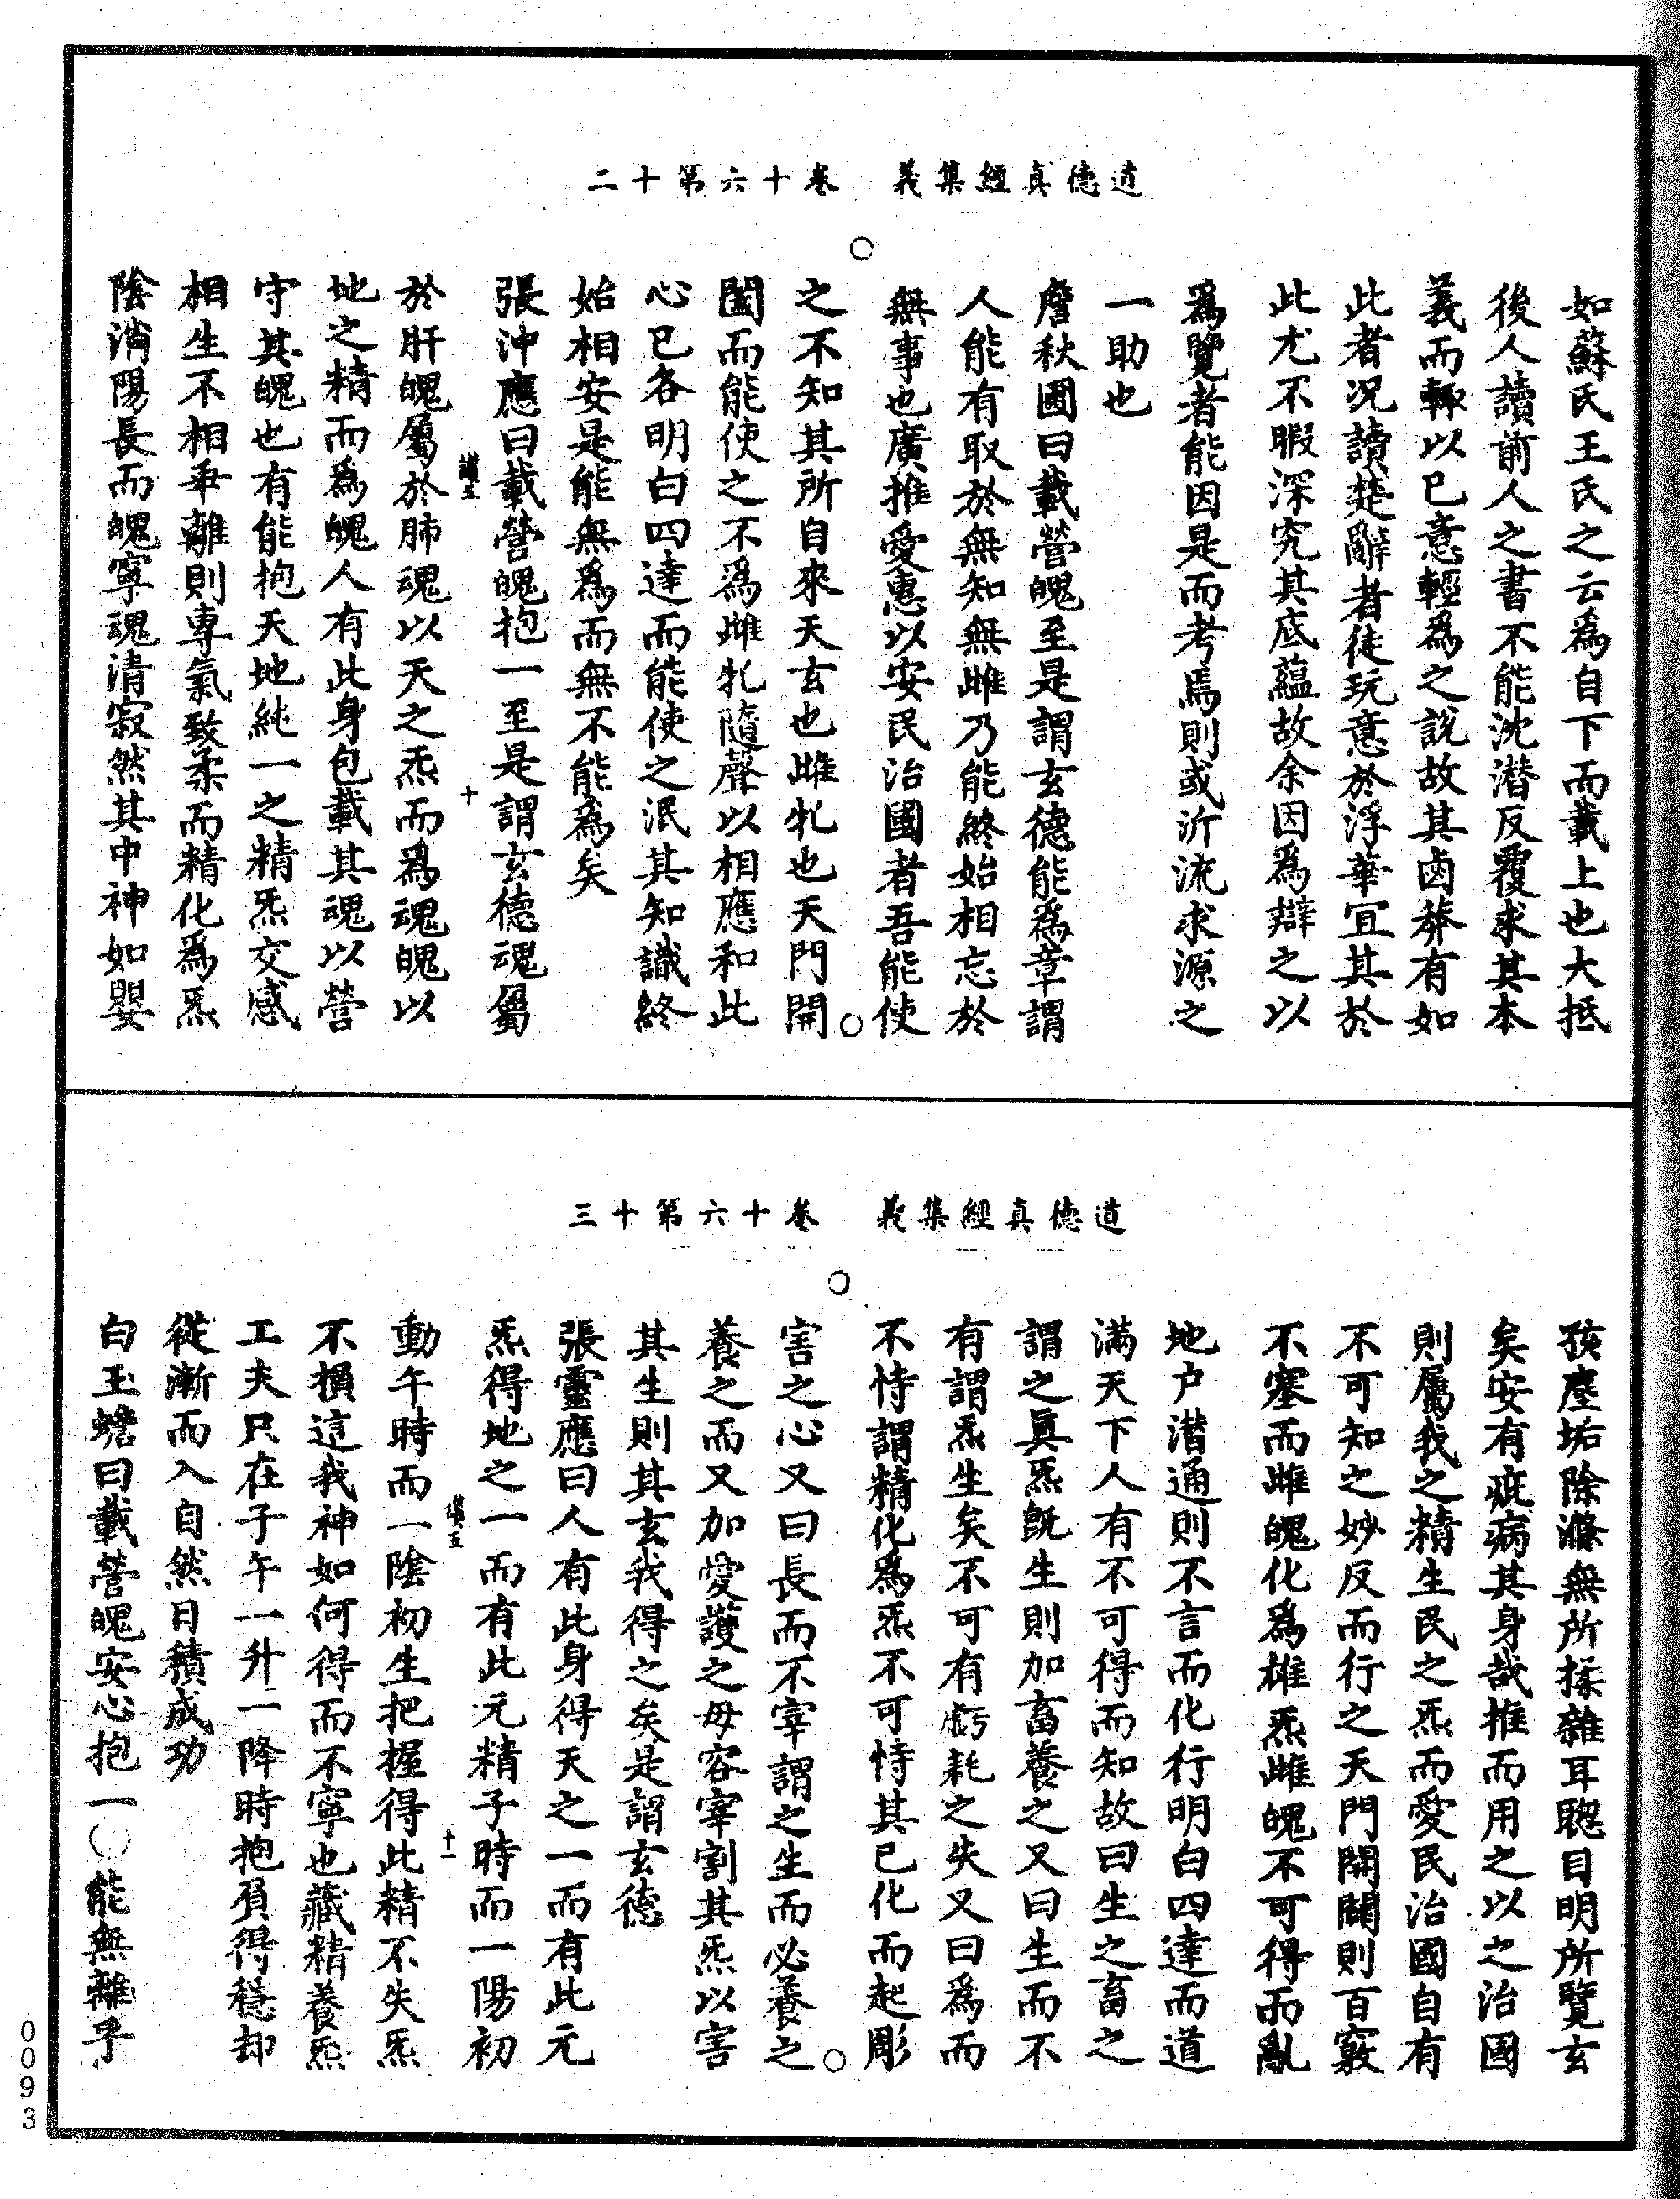 道德真經集義　卷十六第十二
如蘇氏王氏之云爲自下而載上也大抵
後人讀前人之書不能沈潜反覆求其本
義而輙以已意輕爲之說故其鹵莽有如
此者况讀楚辭者徒玩意於浮華宜其於
此尤不暇深究其底蘊故余因爲辯之以
爲覽者能因是而考焉則或泝流求源之
一助也
詹秋圃曰載營魄至是謂玄德能爲章謂
人能有取於無知無雌乃能終始相忘於
無事也廣推愛惠以安民治國者吾能使
之不知其所自來天玄也雌牝也天門開
闔而能使之不爲雌牝隨聲以相應和此
心已各明白四達而能使之泯其知識終
始相安是能無爲而無不能爲矣
張沖應曰載營魄抱一至是謂玄德魂屬
於肝魄屬於肺魂以天之炁而爲魂魄以
地之精而爲魄人有此身包載其魂以營
守其魄也有能抱天地純一之精炁交感
相生不相爭離則專氣致柔而精化爲炁
陰消陽長而魄寧魂清寂然其中神如嬰
十
道德真經集義　卷十六第十三
孩塵垢除滌無所揉雜耳聦目明所覽玄
矣安有疵病其身哉推而用之以之治國
則屬我之精生民之炁而愛民治國自有
不可知之妙反而行之天門開闢則百竅
不塞而雌魄化爲雄炁雌魄不可得而亂
地户潜通則不言而化行明白四達而道
满天下人有不可得而知故曰生之畜之
謂之真炁旣生則加畜養之又曰生而不
有謂炁生矣不可有虧耗之失又曰爲而
不恃謂精化爲炁不可恃其已化而起彫
害之心又曰長而不宰謂之生而必養之
養之而又加愛護之毋容宰割其炁以害
其生則其玄我得之矣是謂玄德
張靈應曰人有此身得天之一而有此元
炁得地之一而有此元精子時而一陽初
動午時而一陰初生把握得此精不失炁
不損這我神如何得而不寧也藏精養炁
工夫只在子午一升一降時抱負得穩却
從漸而入自然日積成功
白玉蟾曰載營魄安心抱一〇能無離乎
十一
0093